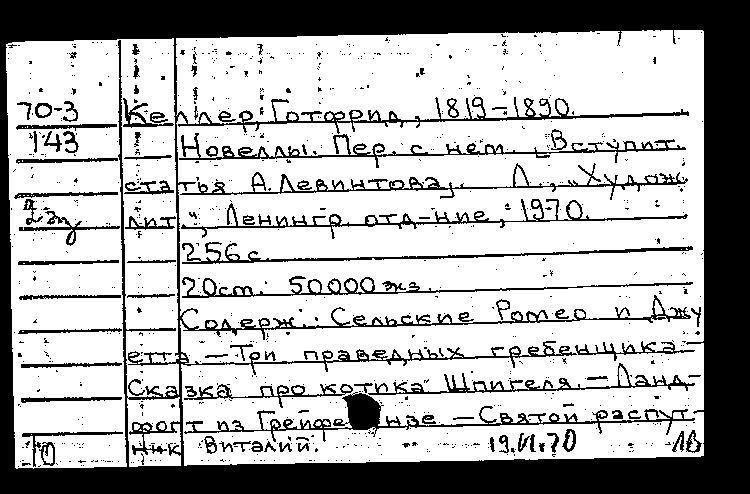 70-3 Келлер, Готфрид, 1819-1890.
143 Новеллы. Пер. с нем. [Вступит.
статья А. Левинтова]. Л., „Худож
2 эк лит.", Ленингр. отд-ние, 1970.
256 с.
20см. 50000 экз.
Содерж.: Сельские Ромео и Джу
етта — Три праведных гребенщика —
Сказка про котика Шпигеля. — Ланд-
фогт из Грейфензе — Святой распут-
ник Виталий. 19.VI.70 ЛВ